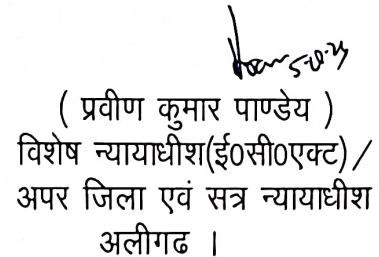 ( प्रवीण कुमार पाण्डेय )
विशेष न्यायाधीश(ई0सी0एक्ट) /
अपर जिला एवं सत्र न्यायाधीश
अलीगढ ।